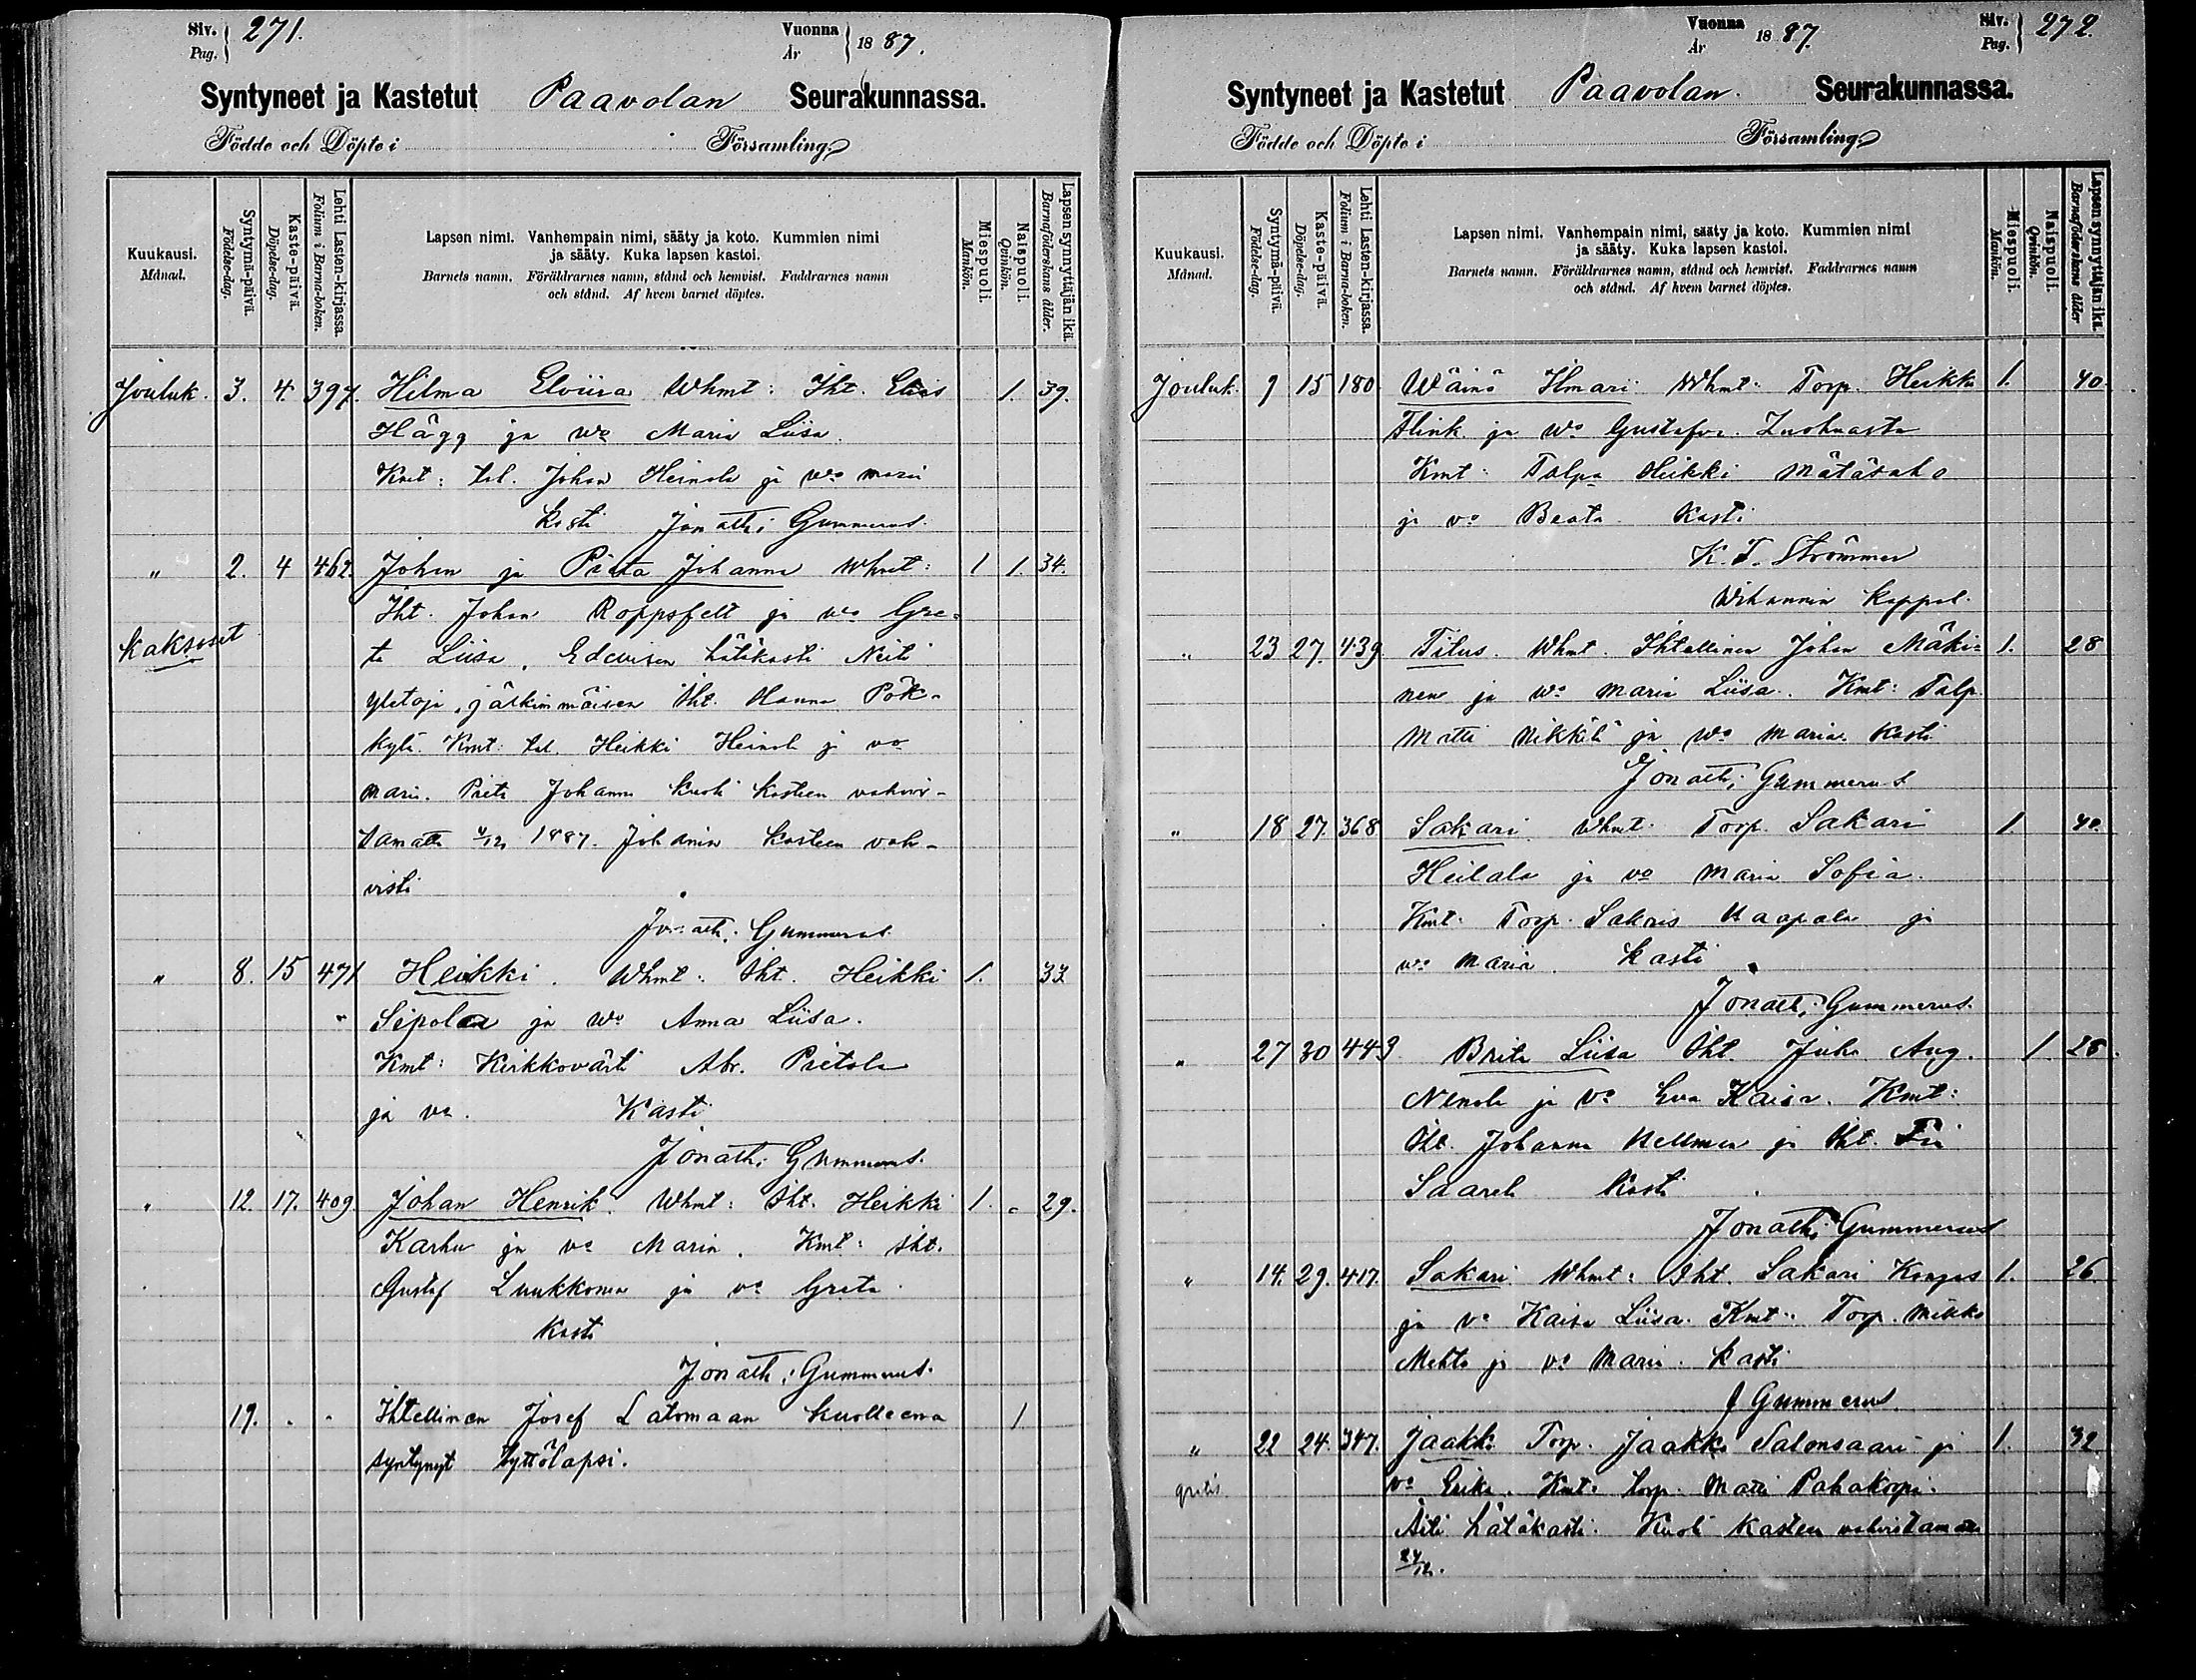 Siv. Pag. 271.
Vuonna År 1887.
Syntyneet ja Kastetut Paavolan Seurakunnassa.
Födde och Döpte i Församling
Kuukausi. Månad.
Syntymä-päivä. Födelse-dag.
Kaste-päivä. Döpelse-dag.
Lehti Lasten-kirjassa. Folium i Barna-boken.
Lapsen nimi. Vanhempain nimi, sääty ja koto. Kummien nimi
ja sääty. Kuka lapsen kastoi.
Barnets namn. Föräldrarnes namn, stånd och hemvist. Faddrarnes namn
och stånd. Af hvem barnet döptes.
Miespuoli. Mankön.
Naispuoli. Qvinkön.
Lapsen synnyttäjän ikä. Barnaföderskans ålder.
Jouluk. 3. 4. 397. Hilma Elviira Whmt: Iht. Elias 1. 39.
Hägg ja wo Maria Liisa.
Kmt: tal. Johan Heinola ja wo Maria
kasti Jonath: Gummerus.
" 2. 4 462. Johan ja Priita Johanna Whmt: 1 1. 34.
Iht. Johan Roppsfelt ja wo Gre-
kaksoset
ta Liisa. Edellisen hätäkasti Neiti
jälkimmäisen Iht. Hanna Pök-
kylä. Kmt: tal. Heikki Heinola ja vo
Maria. Priita Johanna kuoli kasteen vahvis-
tamatta 4/12 1887. Johanin kasteen vah-
visti
Jonath: Gummerus.
" 8. 15 471 Heikki. Whmt: Iht. Heikki 1. 33
Sipola ja wo Anna Liisa.
Kmt: Kirkkovärti Abr. Pietola
ja vo. Kasti
Jonath: Gummerus.
" 12. 17. 409. Johan Henrik. Whmt: Iht. Heikki 1. 29.
Karhu ja vo Maria. Kmt: Iht.
Gustaf Luukkonen ja vo Greta.
Kasti
Jonath: Gummerus.
19. " " Ihtellinen Josef Latomaan kuolleena 1.
syntynyt tyttölapsi.
Vuonna År 1887.
Siv. Pag. 272.
Syntyneet ja Kastetut Paavolan Seurakunnassa.
Födde och Döpte i Församling
Kuukausi. Månad.
Syntymä-päivä. Födelse-dag.
Kaste-päivä. Döpelse-dag.
Lehti Lasten-kirjassa. Folium i Barna-boken.
Lapsen nimi. Vanhempain nimi, sääty ja koto. Kummien nimi
ja sääty. Kuka lapsen kastoi.
Barnets namn. Föräldrarnes namn, stånd och hemvist. Faddrarnes namn
och stånd. Af hvem barnet döptes.
Miespuoli. Mankön.
Naispuoli. Qvinkön.
Lapsen synnyttäjän ikä. Barnaföderskans ålder
Jouluk. 9 15 180 Wäinö Ilmari Whmt: Torp. Heikki 1. 40.
Flink ja wo Gustafva
Kmt: Talp. Heikki Mätäsaho
ja vo Beata. Kasti
K. F. Strömmer
Wihannin kappal.
" 23 27. 439 Titus. Whmt. Ihtellinen Johan Mäki- 1. 28
nen ja wo Maria Liisa. Kmt: Talp.
Matti Mikkilä ja wo Maria. Kasti
Jonath: Gummerus
" 18 27. 368 Sakari Whmt: Torp. Sakari 1. 40.
Heilala ja vo Maria Sofia.
Kmt: Torp. Sakris Kaapala ja
vo Maria. Kasti
Jonath: Gummerus.
" 27 30 449 Brita Liisa Iht. Juho Aug. 1 28.
ja vo Eva Kaisa. Kmt:
Iht. Johanna Hellman ja Iht.
Saarela Kasti
Jonath: Gummerus
" 14. 29. 417. Sakari. Whmt: Iht. Sakari Kangas 1. 26
ja vo Kaisa Liisa. Kmt: Torp. Mikko
Mehto ja vo Maria. Kasti
J Gummerus.
" 22 24. 347. Jaakko Torp. Jaakko Salonsaari ja 1. 32
gratis
vo Erika. Kmt: torp. Matti Pahakopi.
Äiti hätäkasti. Kuoli kasteen vahvistamatta
24/12.